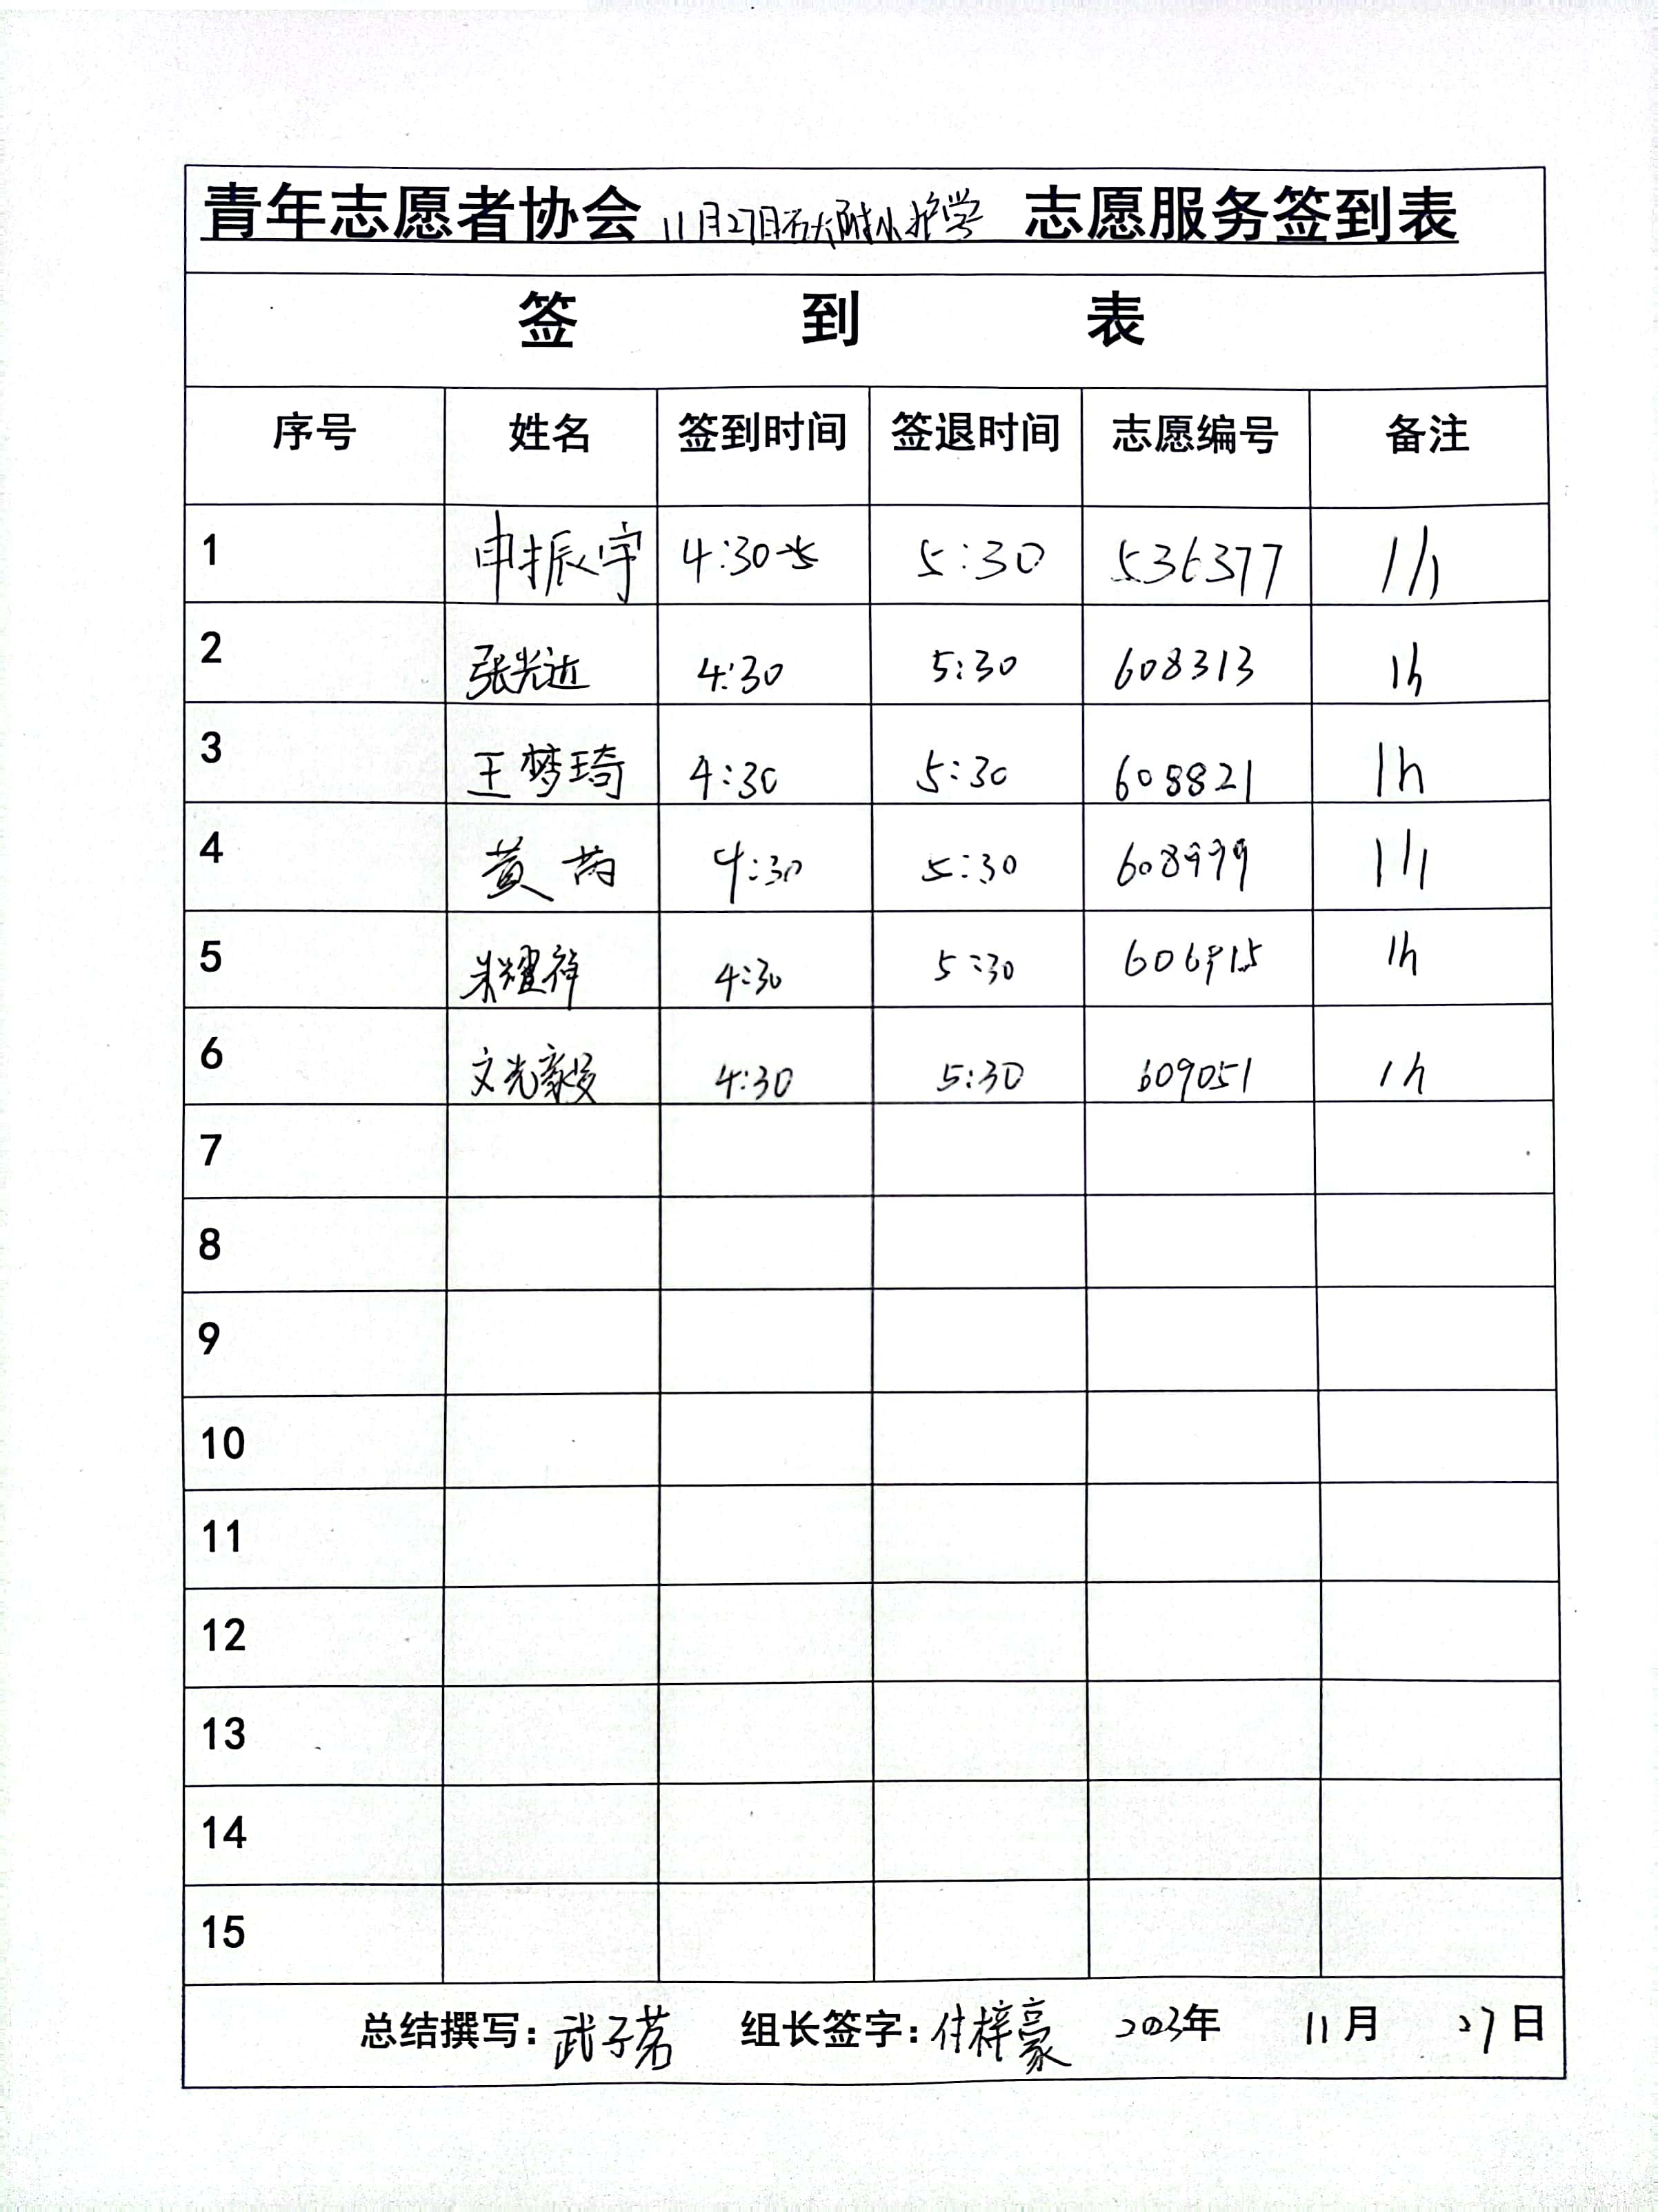 青年志愿者协会 11月27日石大附小护学 志愿服务签到表
签 到 表
序号 姓名 签到时间 签退时间 志愿编号 备注
1 申振宇 4:30 5:30 536377 1h
2 张光达 4:30 5:30 608313 1h
3 王梦琦 4:30 5:30 608821 1h
4 黄芮 4:30 5:30 608999 1h
5 朱耀祥 4:30 5:30 606915 1h
6 文光毅 4:30 5:30 609051 1h
7
8
9
10
11
12
13
14
15
总结撰写：武子茗 组长签字：付梓豪 2023年 11月 27日